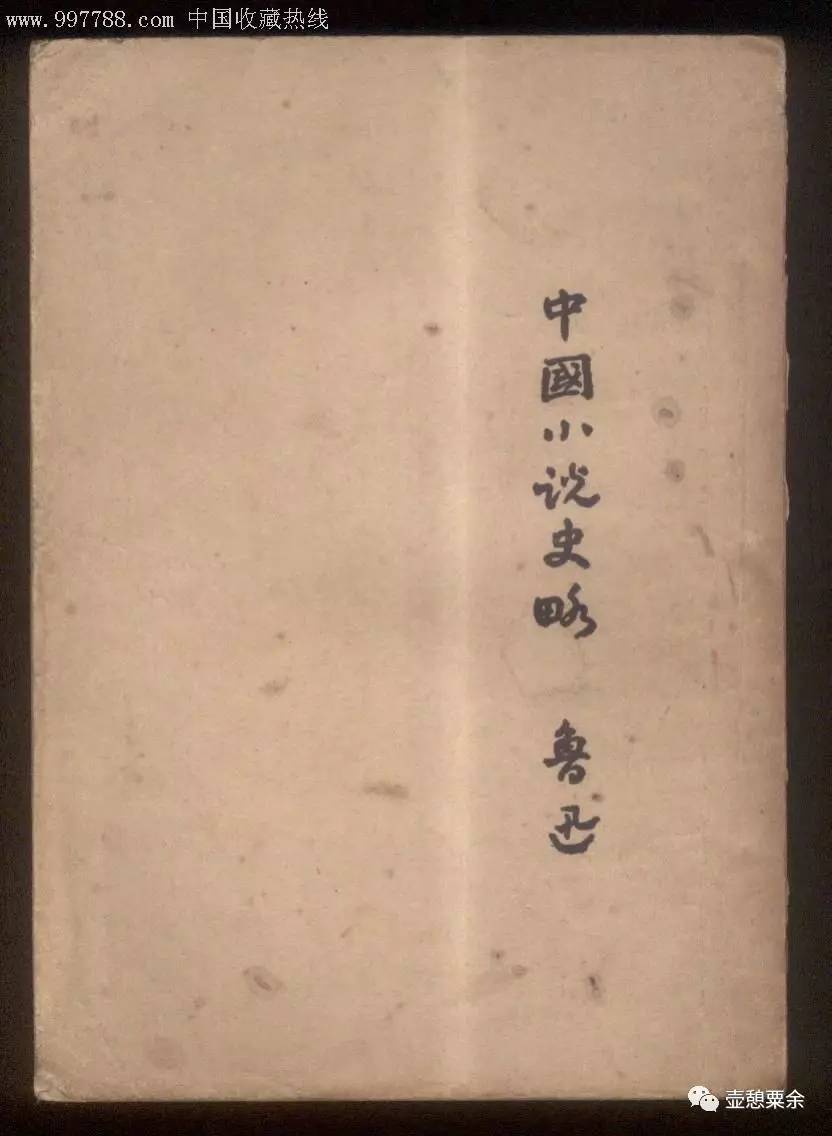 www.997788.com 中国收藏热线
中國小説史略 魯迅
壶憩粟余